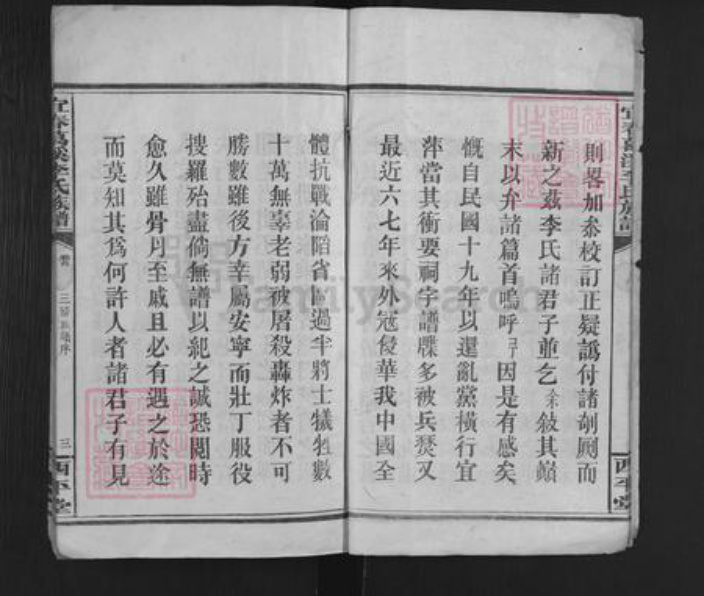 宜春萬溪李氏族譜
西平堂
則畧加叅校訂正疑譌付諸剞劂而
新之茲李氏諸君子並乞余敍其巔
末以弁諸篇首嗚呼予因是有感矣
慨自民國十九年以還亂黨橫行宜
萍當其衝要祠宇譜牒多被兵燹又
最近六七年來外冦侵華我中國全
體抗戰淪陷省區過半將士犠牲數
十萬無辜老弱被屠殺轟炸者不可
勝數雖後方幸屬安寧而壯丁服役
搜羅殆盡倘無譜以紀之誠恐閱時
愈久雖骨月至戚且必有遇之於途
而莫知其爲何許人者諸君子有見
宜春萬溪李氏族譜
卷首
三
西平堂
FamilySearch